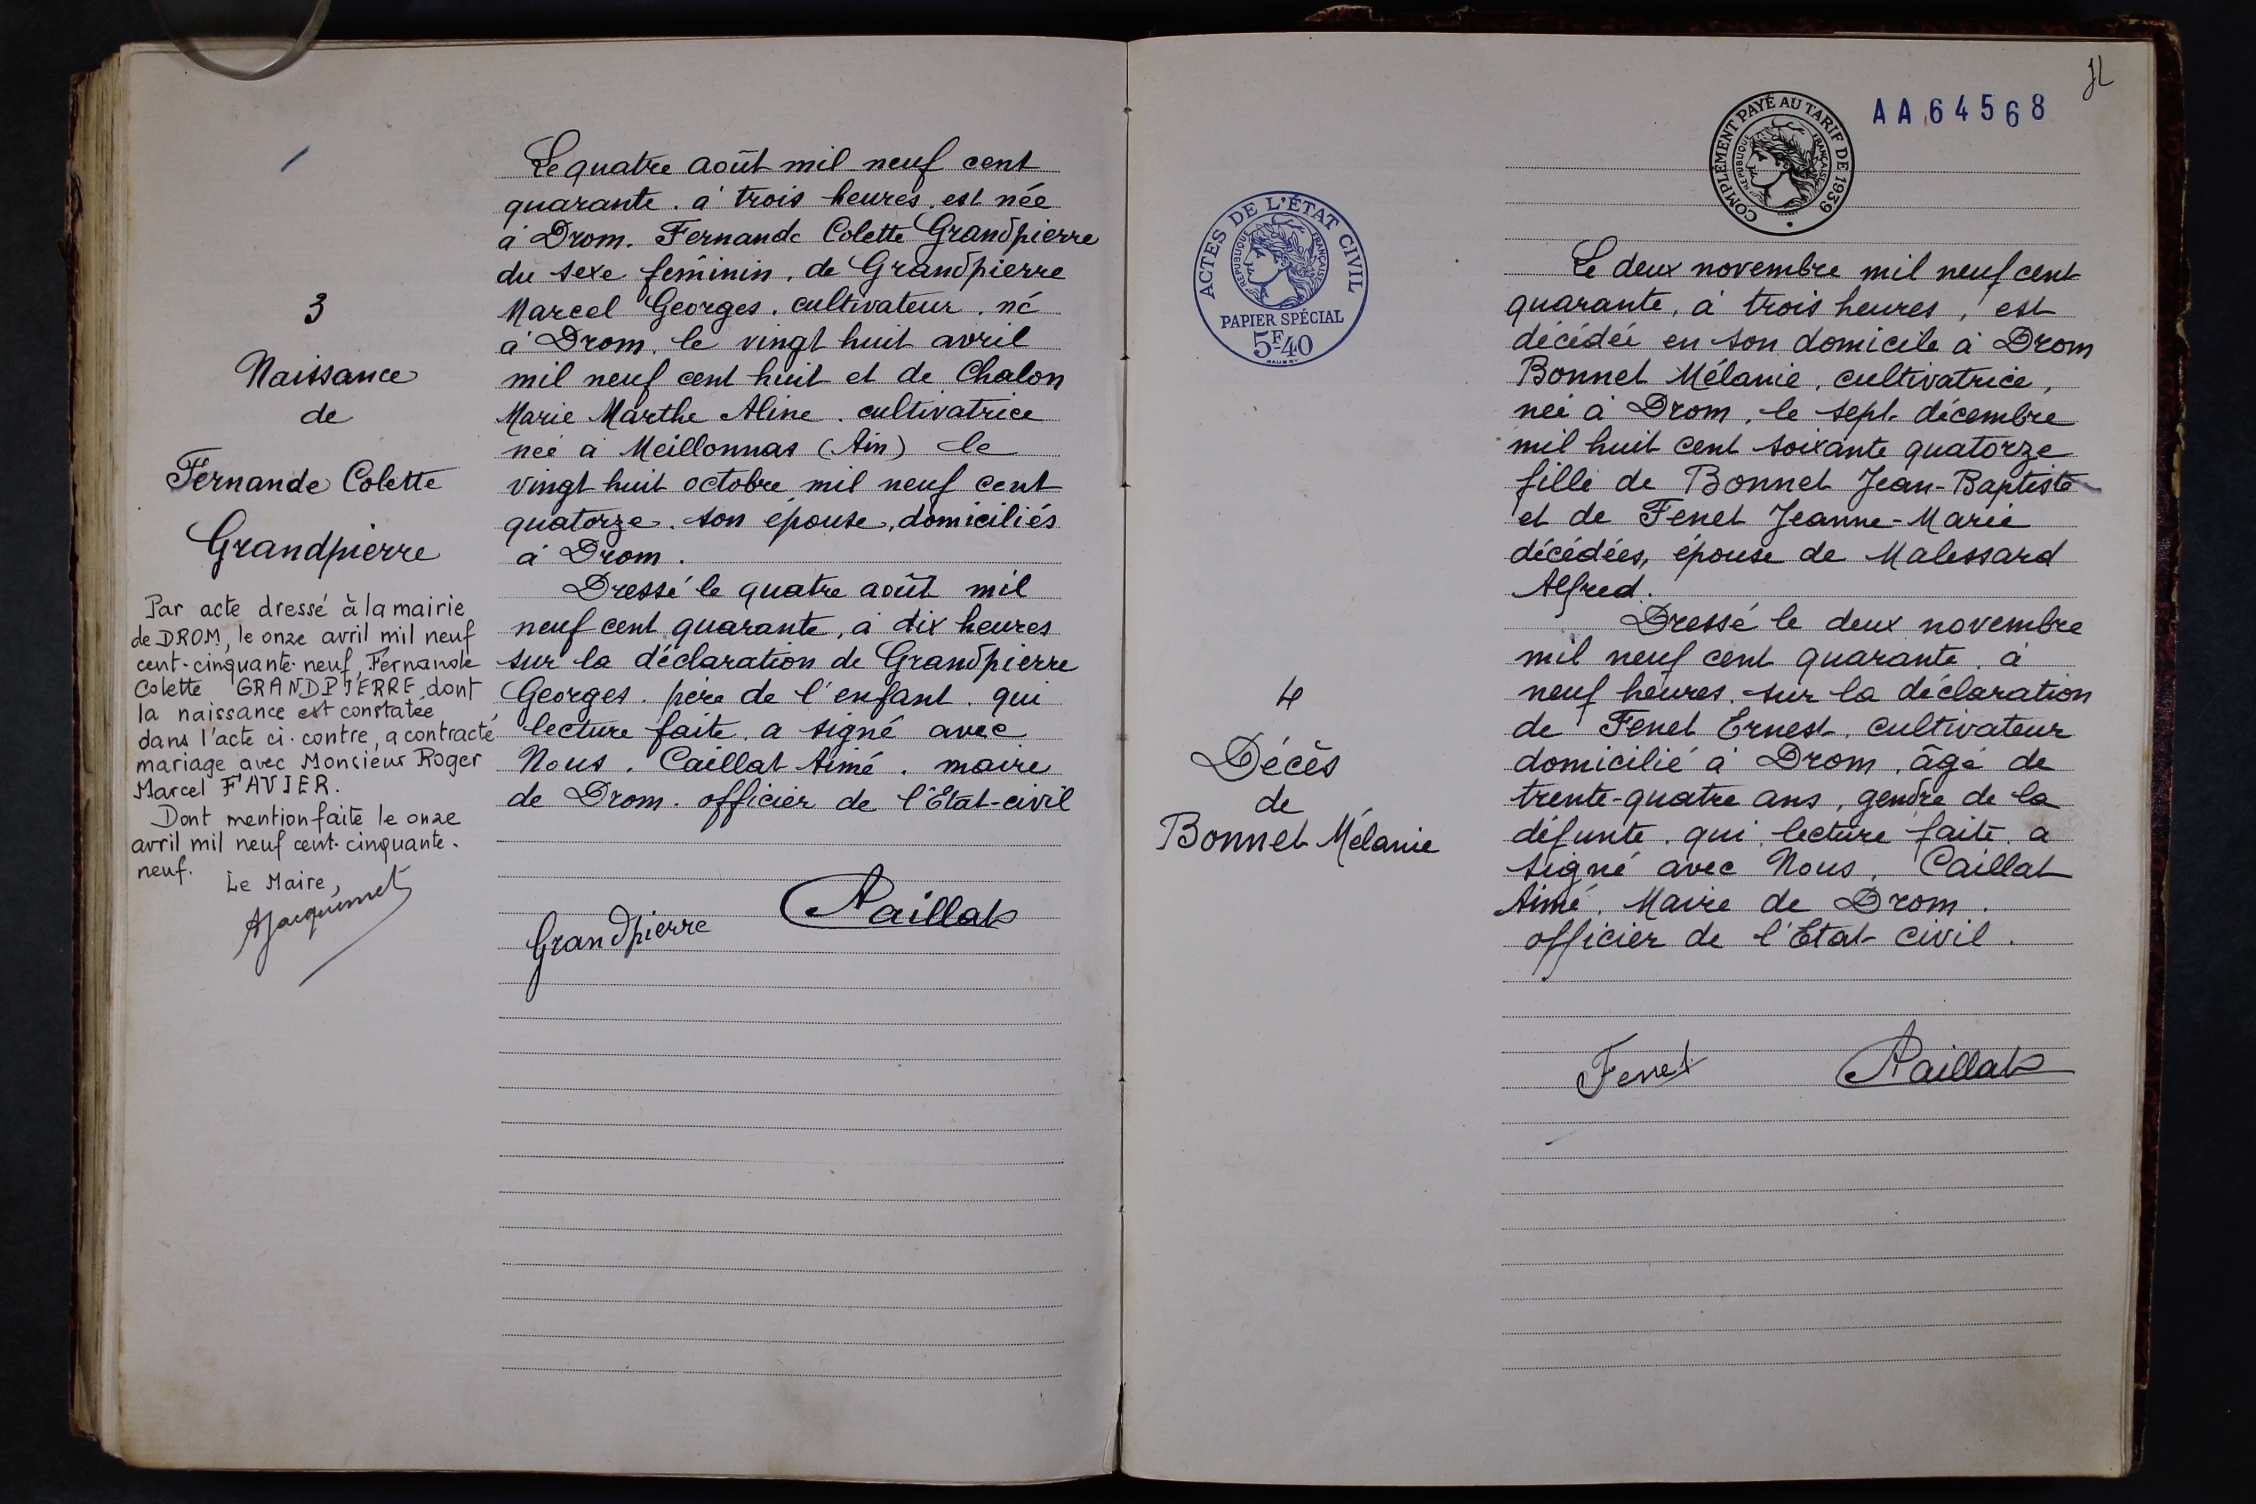 3
Naissance
de
Fernande Colette
Grandpierre
Par acte dressé à la mairie
de DROM, le onze avril mil neuf
cent-cinquante-neuf, Fernande
Colette GRANDPIERRE, dont
la naissance est constatée
dans l'acte ci-contre, a contracté
mariage avec Monsieur Roger
Marcel FAVIER.
Dont mention faite le onze
avril mil neuf cent-cinquante-
neuf.
Le Maire,
AJacquemet
Le quatre août mil neuf cent
quarante. à trois heures. est née
à Drom. Fernande Colette Grandpierre
du sexe féminin. de Grandpierre
Marcel Georges. cultivateur. né
à Drom. le vingt huit avril
mil neuf cent huit et de Chalon
Marie Marthe Aline. cultivatrice
née à Meillonnas (Ain) le
vingt huit octobre mil neuf cent
quatorze. son épouse, domiciliés
à Drom.
Dressé le quatre août mil
neuf cent quarante, à dix heures
sur la déclaration de Grandpierre
Georges. père de l'enfant. qui
lecture faite. a signé avec
Nous. Caillat Aimé. maire
de Drom. officier de l'Etat-civil
Grandpierre
Caillat
ACTES DE L'ÉTAT CIVIL
REPUBLIQUE FRANÇAISE
PAPIER SPÉCIAL
5F40
4
Décès
de
Bonnet Mélanie
COMPLÉMENT PAYÉ AU TARIF DE 1939
REPUBLIQUE FRANÇAISE
AA64568
Le deux novembre mil neuf cent
quarante, à trois heures, est
décédée en son domicile à Drom
Bonnet Mélanie, cultivatrice,
née à Drom, le sept décembre
mil huit cent soixante quatorze
fille de Bonnet Jean-Baptiste
et de Fenet Jeanne-Marie
décédées, épouse de Malessard
Alfred.
Dressé le deux novembre
mil neuf cent quarante. à
neuf heures. sur la déclaration
de Fenet Ernest. cultivateur
domicilié à Drom, âgé de
trente-quatre ans, gendre de la
défunte. qui lecture faite a
signé avec Nous, Caillat
Aimé. Maire de Drom.
officier de l'Etat civil.
Fenet
Caillat